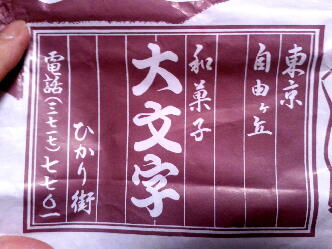 東京
自由ヶ丘
和菓子
大文字
ひかり街
電話(三七一七)七七〇一